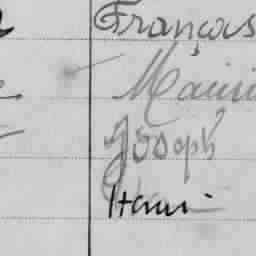 François
Mauri
Joseph
Henri